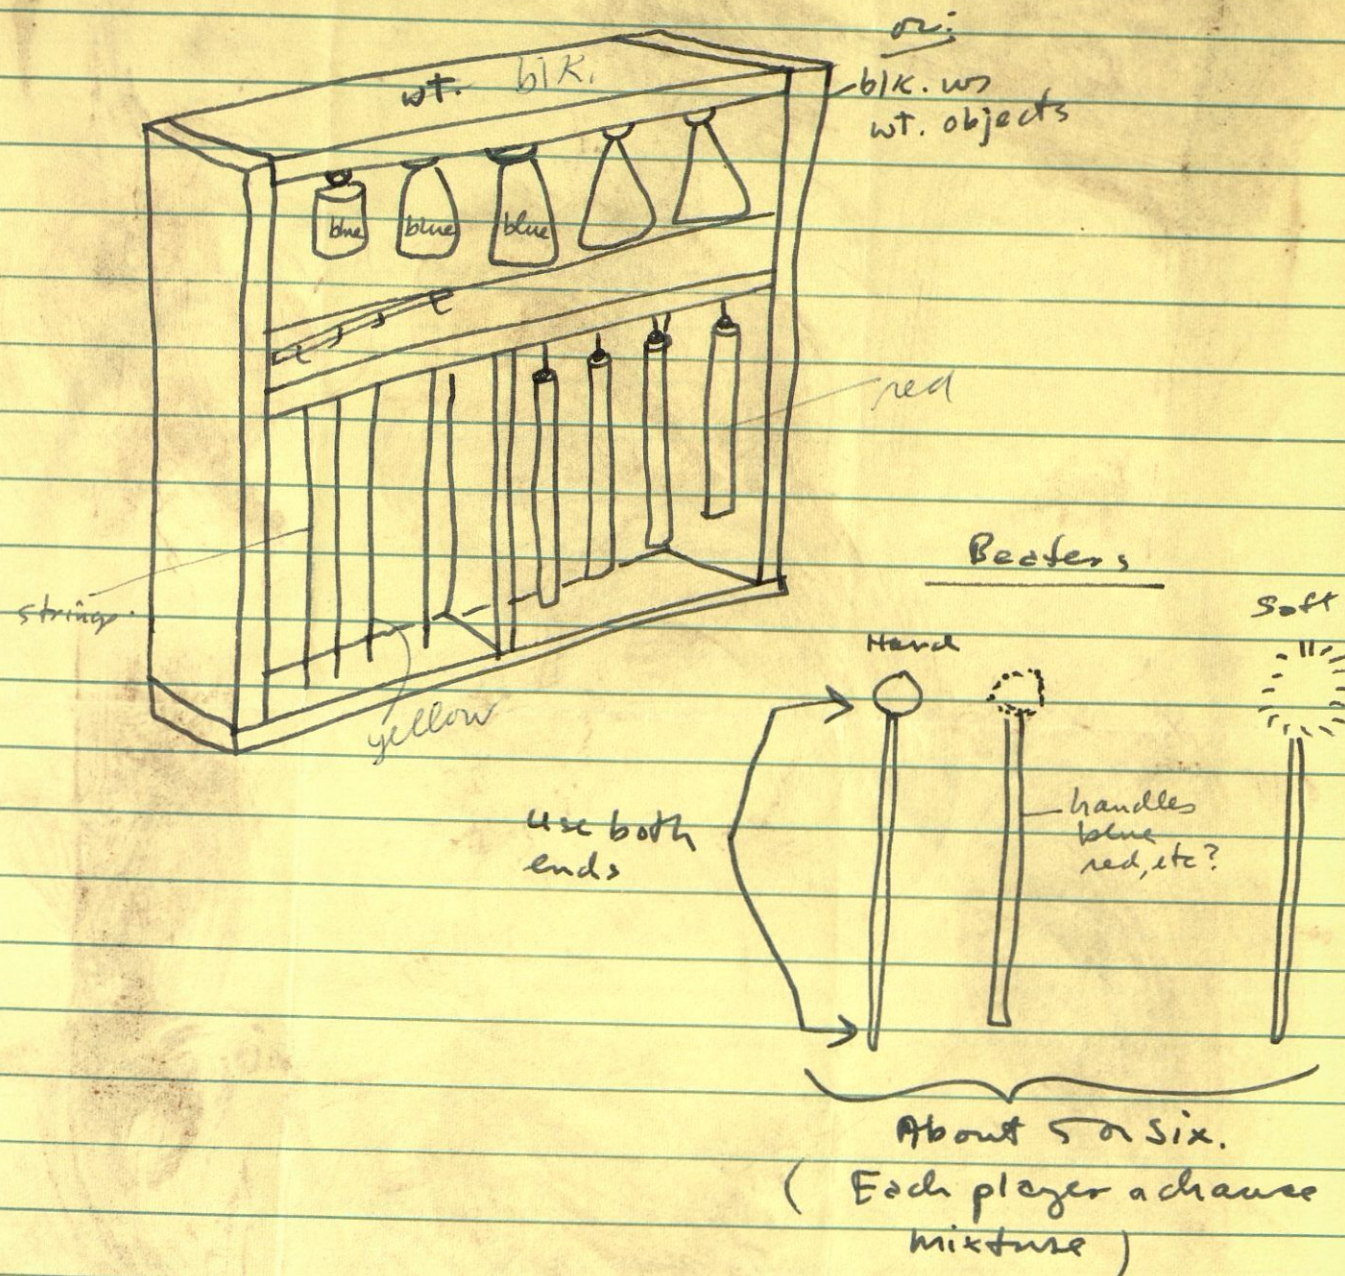 or:
wt. blk.
blk. w/
wt. objects
blue blue blue
red
strings
yellow
Beaters
Hard
Soft
Use both
ends
handles
blue
red, etc?
About 5 or six.
( Each player a chance
mixture )